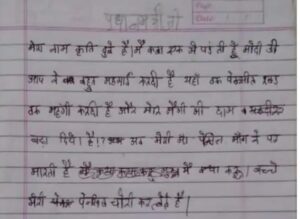 प्रधानमंत्री जी
मेरा नाम कृति दुबे है। मैं कक्षा एक में पढ़ती हूँ मोदी जी
आप ने बहुत महंगाई करदी है यहां तक पेन्सील रबड़
तक महंगी करदी है और मेरे मैगी की दाम
बढ़ा दिये है। अब मेरी माँ पेंसिल माँगने पर
मारती है मैं क्या करू। बच्चे
मेरी पेन्सिल चोरी कर लेते है।